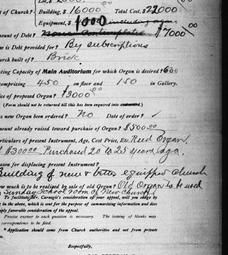 of Church? Building, $16000 Total Cost, $22000
Equipment, $1000
Amount of Debt? $7000
is Debt provided for? By subscriptions
Church built of? Brick
Seating Capacity of Main Auditorium for which Organ is desired? 600
Comprising 450 on floor and 150 in Gallery.
Price of proposed Organ? $3000
(Form should not be returned till this has been inquired into
Has new Organ been ordered? No Date of order?
Amount already raised toward purchase of Organ? $500.00
Particulars of present Instrument, Age, Cost Price, Etc. Reed Organ
$300.00 Purchased 20 to 25 years ago.
Reason for displacing present Instrument?
Building of new & better equipped church
which is to be realized by sale of old Organ? Old Organ to be used
in Sunday School room of New Church
To facilitate Mr. Carnegie's consideration of your appeal, will you oblige by
in the above, which is sent for the purpose of summarizing information and
favorable consideration of the appeal.
Precise answer to each question is necessary. The
correspondence to be forwarded.
*Application should come from Church authorities and not from private
Respectfully,